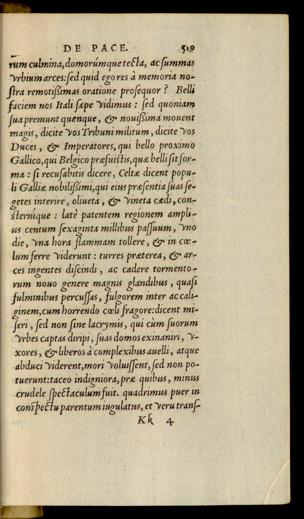 DE PACE. 519
rum culmina, domorúmque tecta, ac summas
vrbium arces: sed quid ego res à memoria no-
stra remotissimas oratione prosequor? Belli
faciem nos Itali sæpe vidimus: sed quoniam
sua premunt quenque, & nouissima mouent
magis, dicite vos Tribuni militum, dicite vos
Duces, & Imperatores, qui bello proximo
Gallico, qui Belgico præfuistis, quæ belli sit for-
ma: si recusabitis dicere, Celtæ dicent popu-
li Galliæ nobilissimi, qui eius præsentia suas se-
getes interire, oliueta, & vineta cædi, con-
sternique: latè patentem regionem ampli-
us centum sexaginta millibus passuum, vno
die, vna hora flammam tollere, & in cœ-
lum ferre viderunt: turres præterea, & ar-
ces ingentes discindi, ac cadere tormento-
rum nouo genere magnis glandibus, quasi
fulminibus percussas, fulgorem inter ac cali-
ginem, cum horrendo cœli fragore: dicent mi-
seri, sed non sine lacrymis, qui cùm suorum
vrbes captas diripi, suas domos exinaniri, v-
xores, & liberos à complexibus auelli, atque
abduci viderent, mori voluissent, sed non po-
tuerunt: taceo indigniora, præ quibus, minus
crudele spectaculum fuit. quadrimus puer in
conspectu parentum iugulatus, et veru transf-
Kk 4